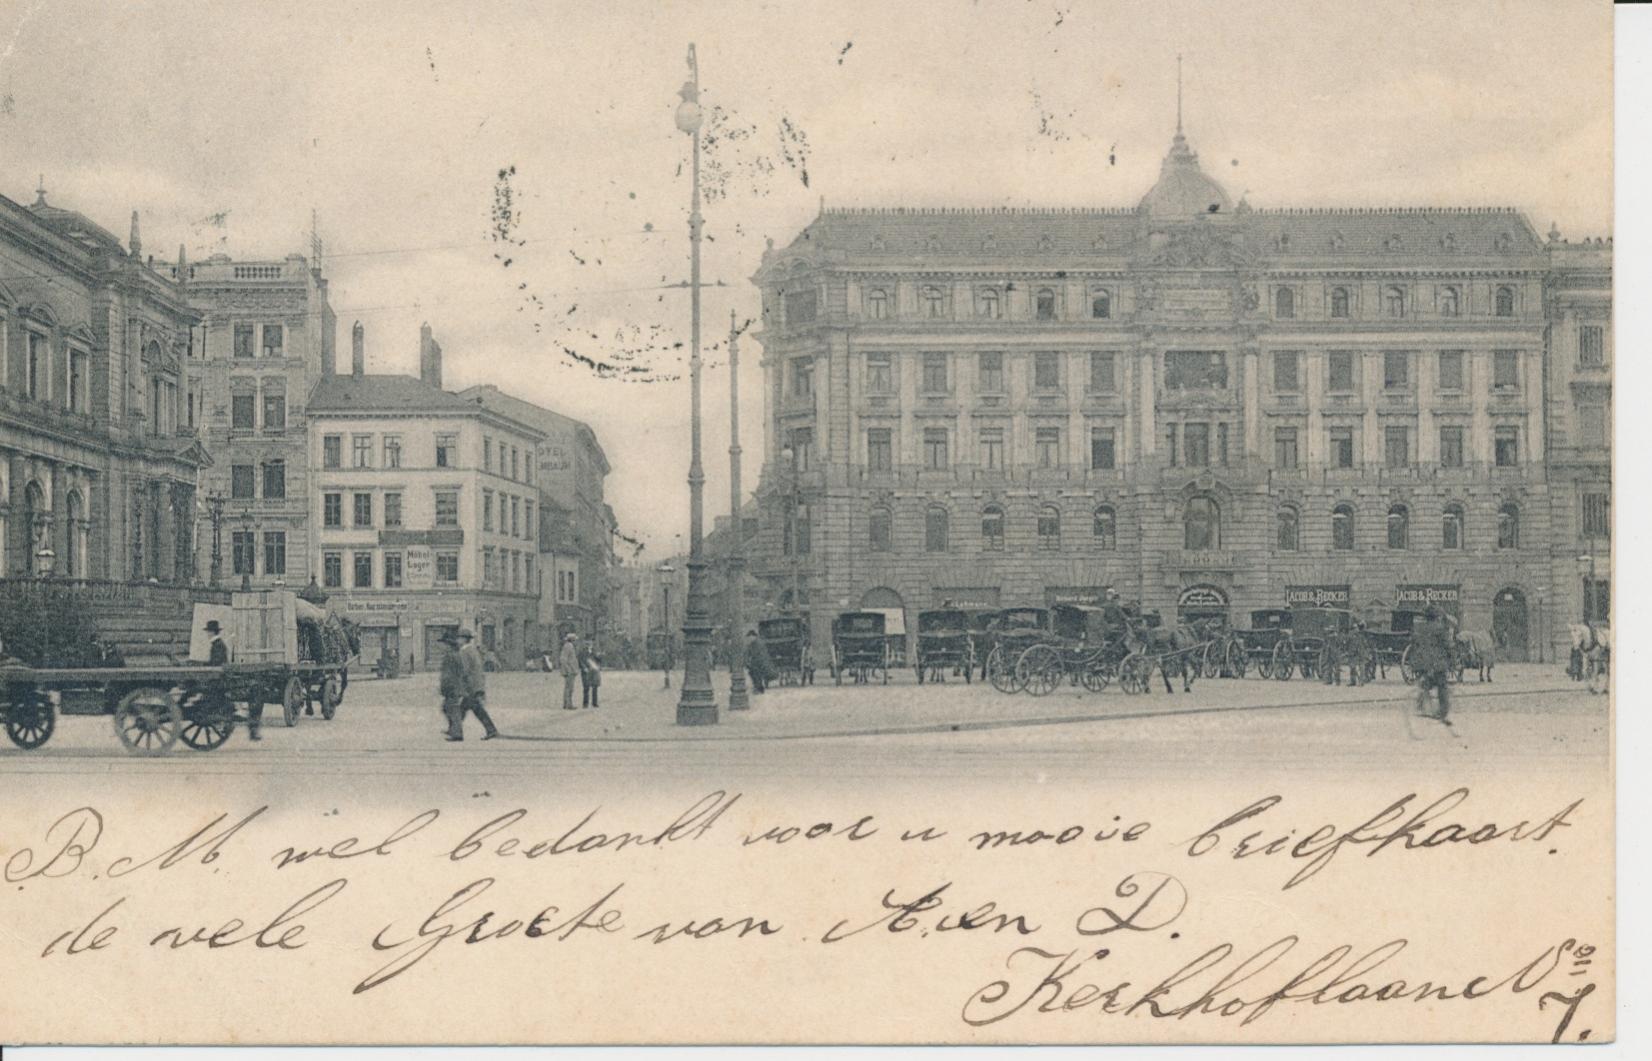 JACOB & BECKER
JACOB & BECKER
Möbel-
Lager
B. M. wel bedankt voor u mooie briefkaart.
de vele Groete van A. en D.
Kerkhoflaan No
7.